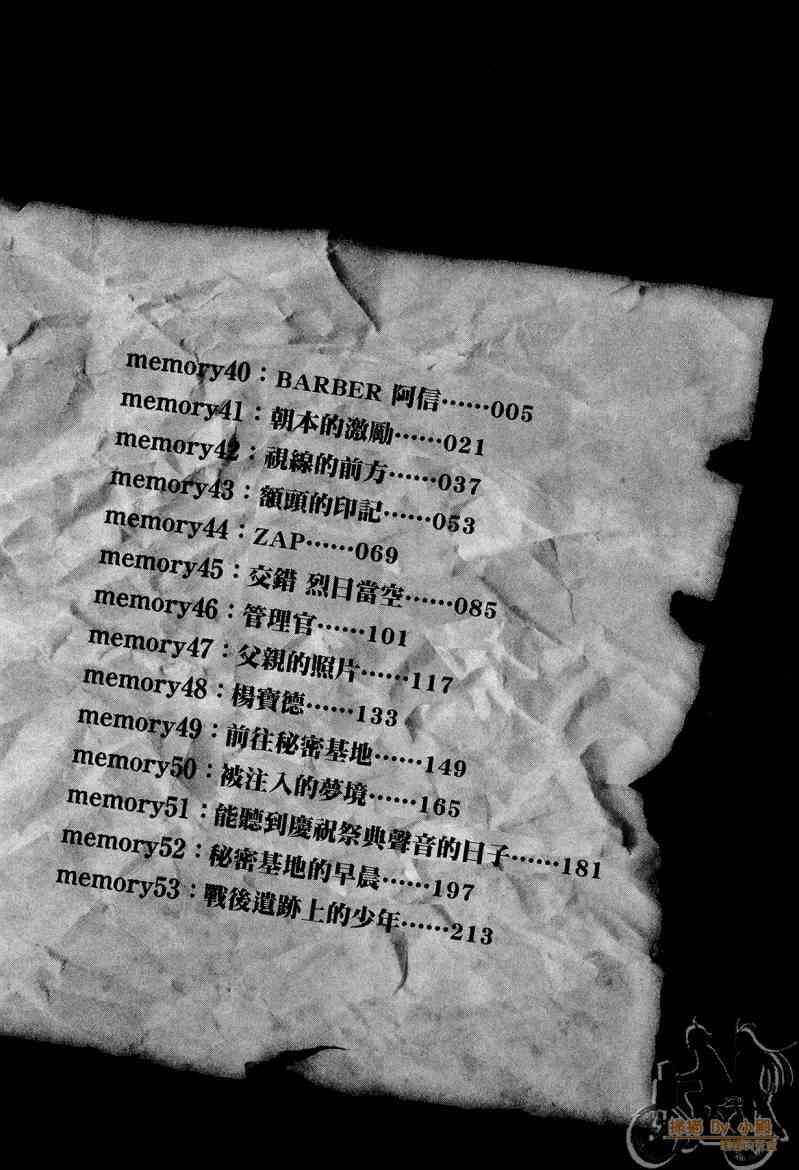 memory40：BARBER 阿信……005
memory41：朝本的激勵……021
memory42：視線的前方……037
memory43：額頭的印記……053
memory44：ZAP……069
memory45：交錯 烈日當空……085
memory46：管理官……101
memory47：父親的照片……117
memory48：楊寶德……133
memory49：前往秘密基地……149
memory50：被注入的夢境……165
memory51：能聽到慶祝祭典聲音的日子……181
memory52：秘密基地的早晨……197
memory53：戰後遺跡上的少年……213
By 小鵬